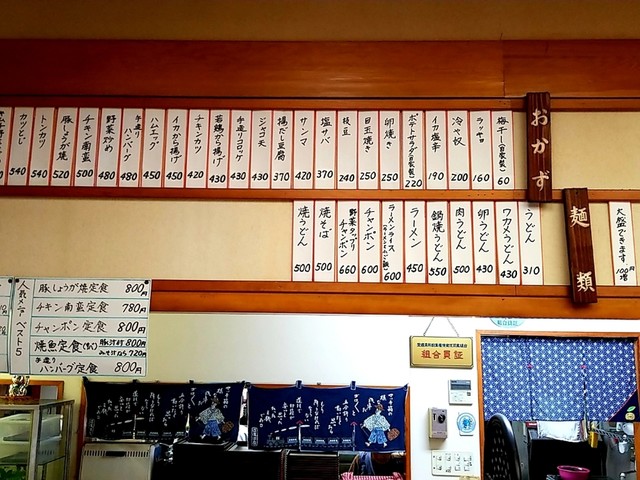 おかず
梅干し(自家製) 60
ラッキョ 160
冷や奴 200
イカ塩辛 190
ポテトサラダ(自家製) 220
卵焼き 250
目玉焼き 250
枝豆 240
塩サバ 370
サンマ 420
揚だし豆腐 370
ジャコ天 430
手造りコロッケ 430
若鶏から揚げ 430
チキンカツ 420
イカから揚げ 450
ハムエッグ 450
手造りハンバーグ 480
野菜炒め 480
チキン南蛮 500
豚しょうが焼 520
トンカツ 540
カツとじ 540
麺類
うどん 310
ワカメうどん 430
卵うどん 430
肉うどん 500
鍋焼うどん 550
ラーメン 450
ラーメンライス 600
チャンポン 600
野菜タップリチャンポン 660
焼そば 500
焼うどん 500
大盛できます 100円増
人気メニューベスト5
豚しょうが焼定食 800円
チキン南蛮定食 780円
チャンポン定食 800円
焼魚定食
ハンバーグ定食 800円
手造り
組合員証